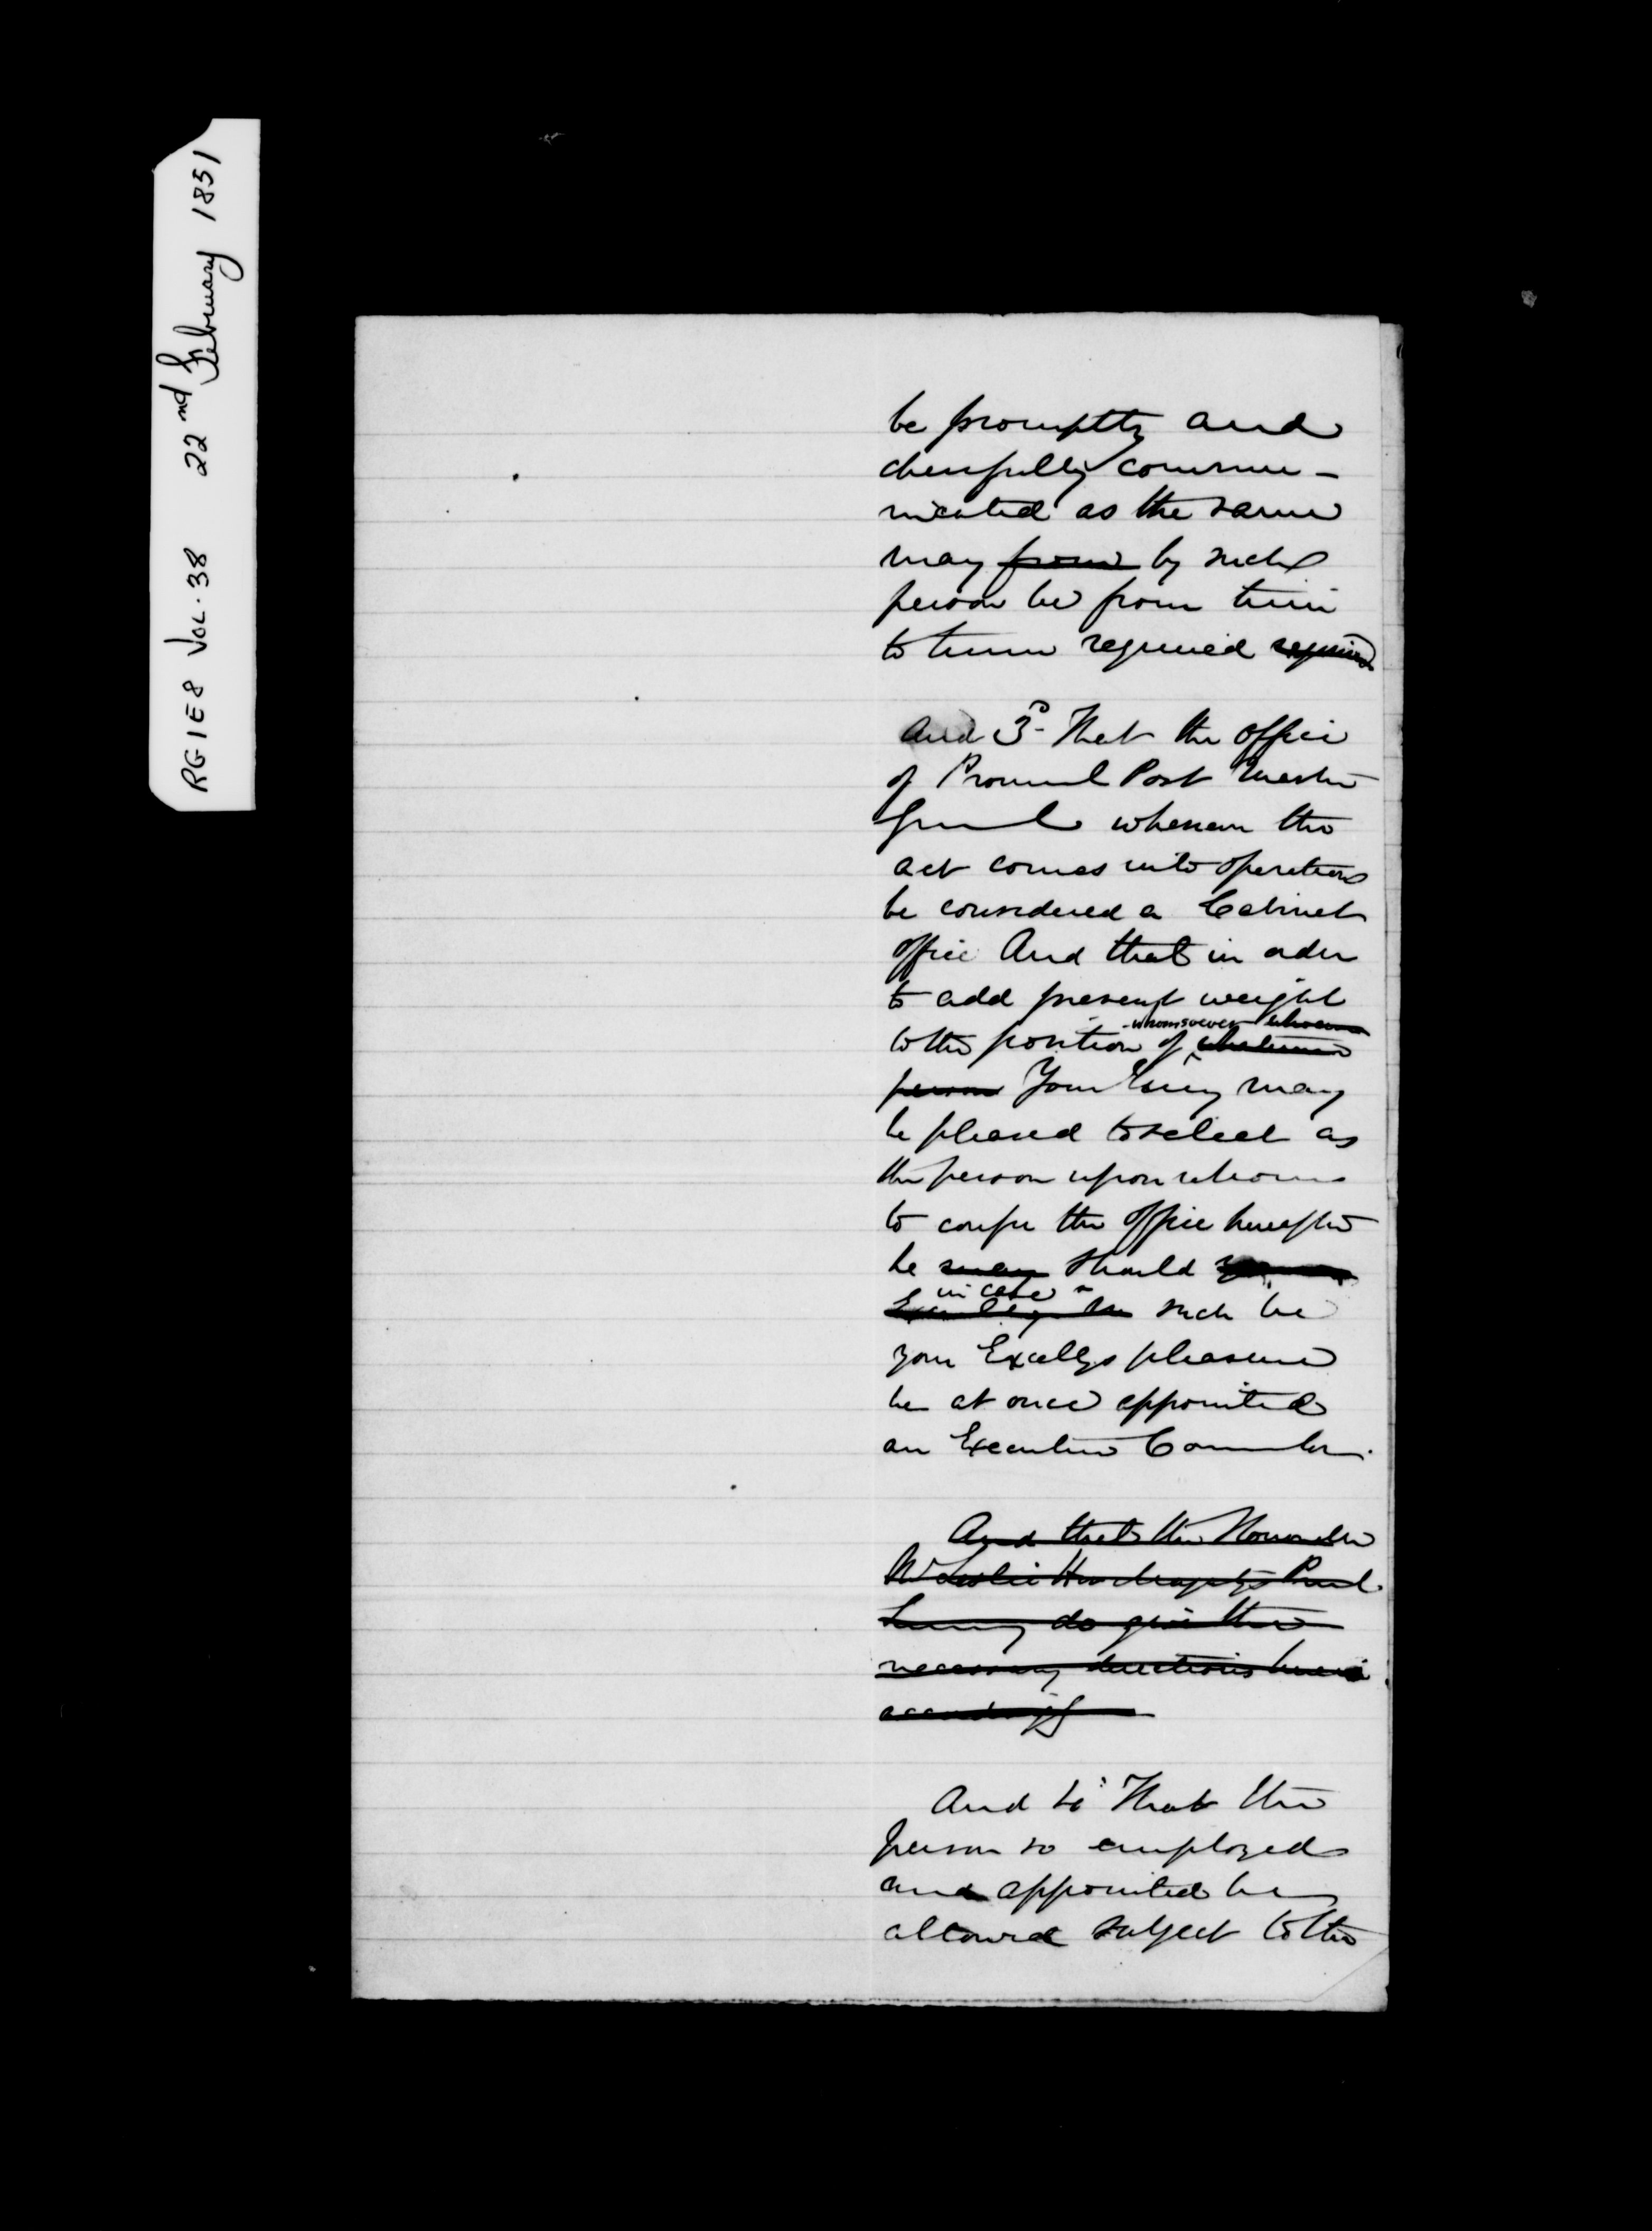 RG 1 E 8 VOL. 38 22nd February 1851
be promptly and
cheerfully commu-
nicated as the same
may from by such
person be from time
to time required required
And 3° That the office
of Provincial Post Master
General whenever the
act comes into operation
be considered a Cabinet
office And that in order
to add present weight
whomsoever
to the position of whatever
person Your Excy may
be pleased to select as
the person upon whom
to confer the office hereafter
he may should
in case
such be
your Excellys pleasure
be at once appointed
an Executive Councilor.
And that the Honorable
Mr Leslie Her Majestys Provl
Secretary do give the
necessary directions herein
accordingly
And 4° That the
person so employed
and appointed be
allowed subject to the